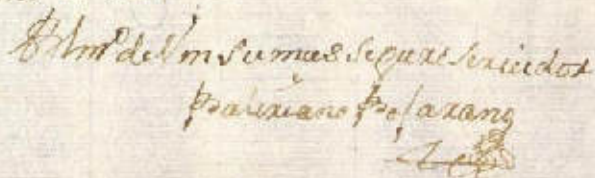 BLmº de Vm su mas seguro servidor
Baleriano Bejarano